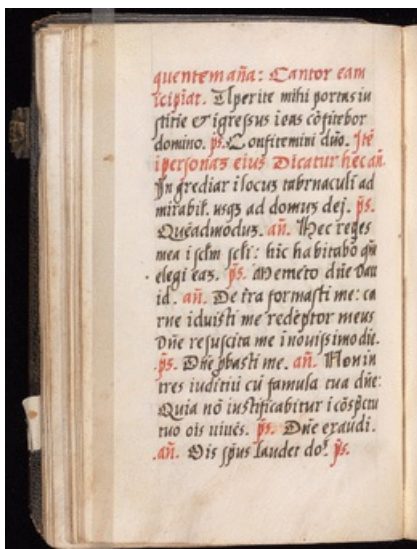 quentem aña: Cantor eam
icipiat. Aperite mihi portas iu
stitie & igressus i eas cõfitebor
domino. ps̃. Confitemini dño. Itẽ
i personaʒ eius Dicatur hec añ.
In grediar i locuʒ tabrnaculi ad
mirabiƚ. usqʒ ad domuʒ dej. ps̃.
Quẽadmoduʒ. añ. Hec reqes
mea i sclm̃ scli: hic habitabo qm̃
elegi eaʒ. ps̃. Memeto dñe Dau
id. añ. De tra formasti me: ca
rne iduisti me redẽptor meus
Dñe resuscita me i nouissimo die.
ps̃. Dñe pbasti me. añ. Non in
tres iuditiũ cũ famula tua dñe:
Quia nõ iustificabitur i cõspctu
tuo ois uiuẽs. ps̃. Dñe exaudi.
añ. Ois sp̃us laudet do². ps̃.